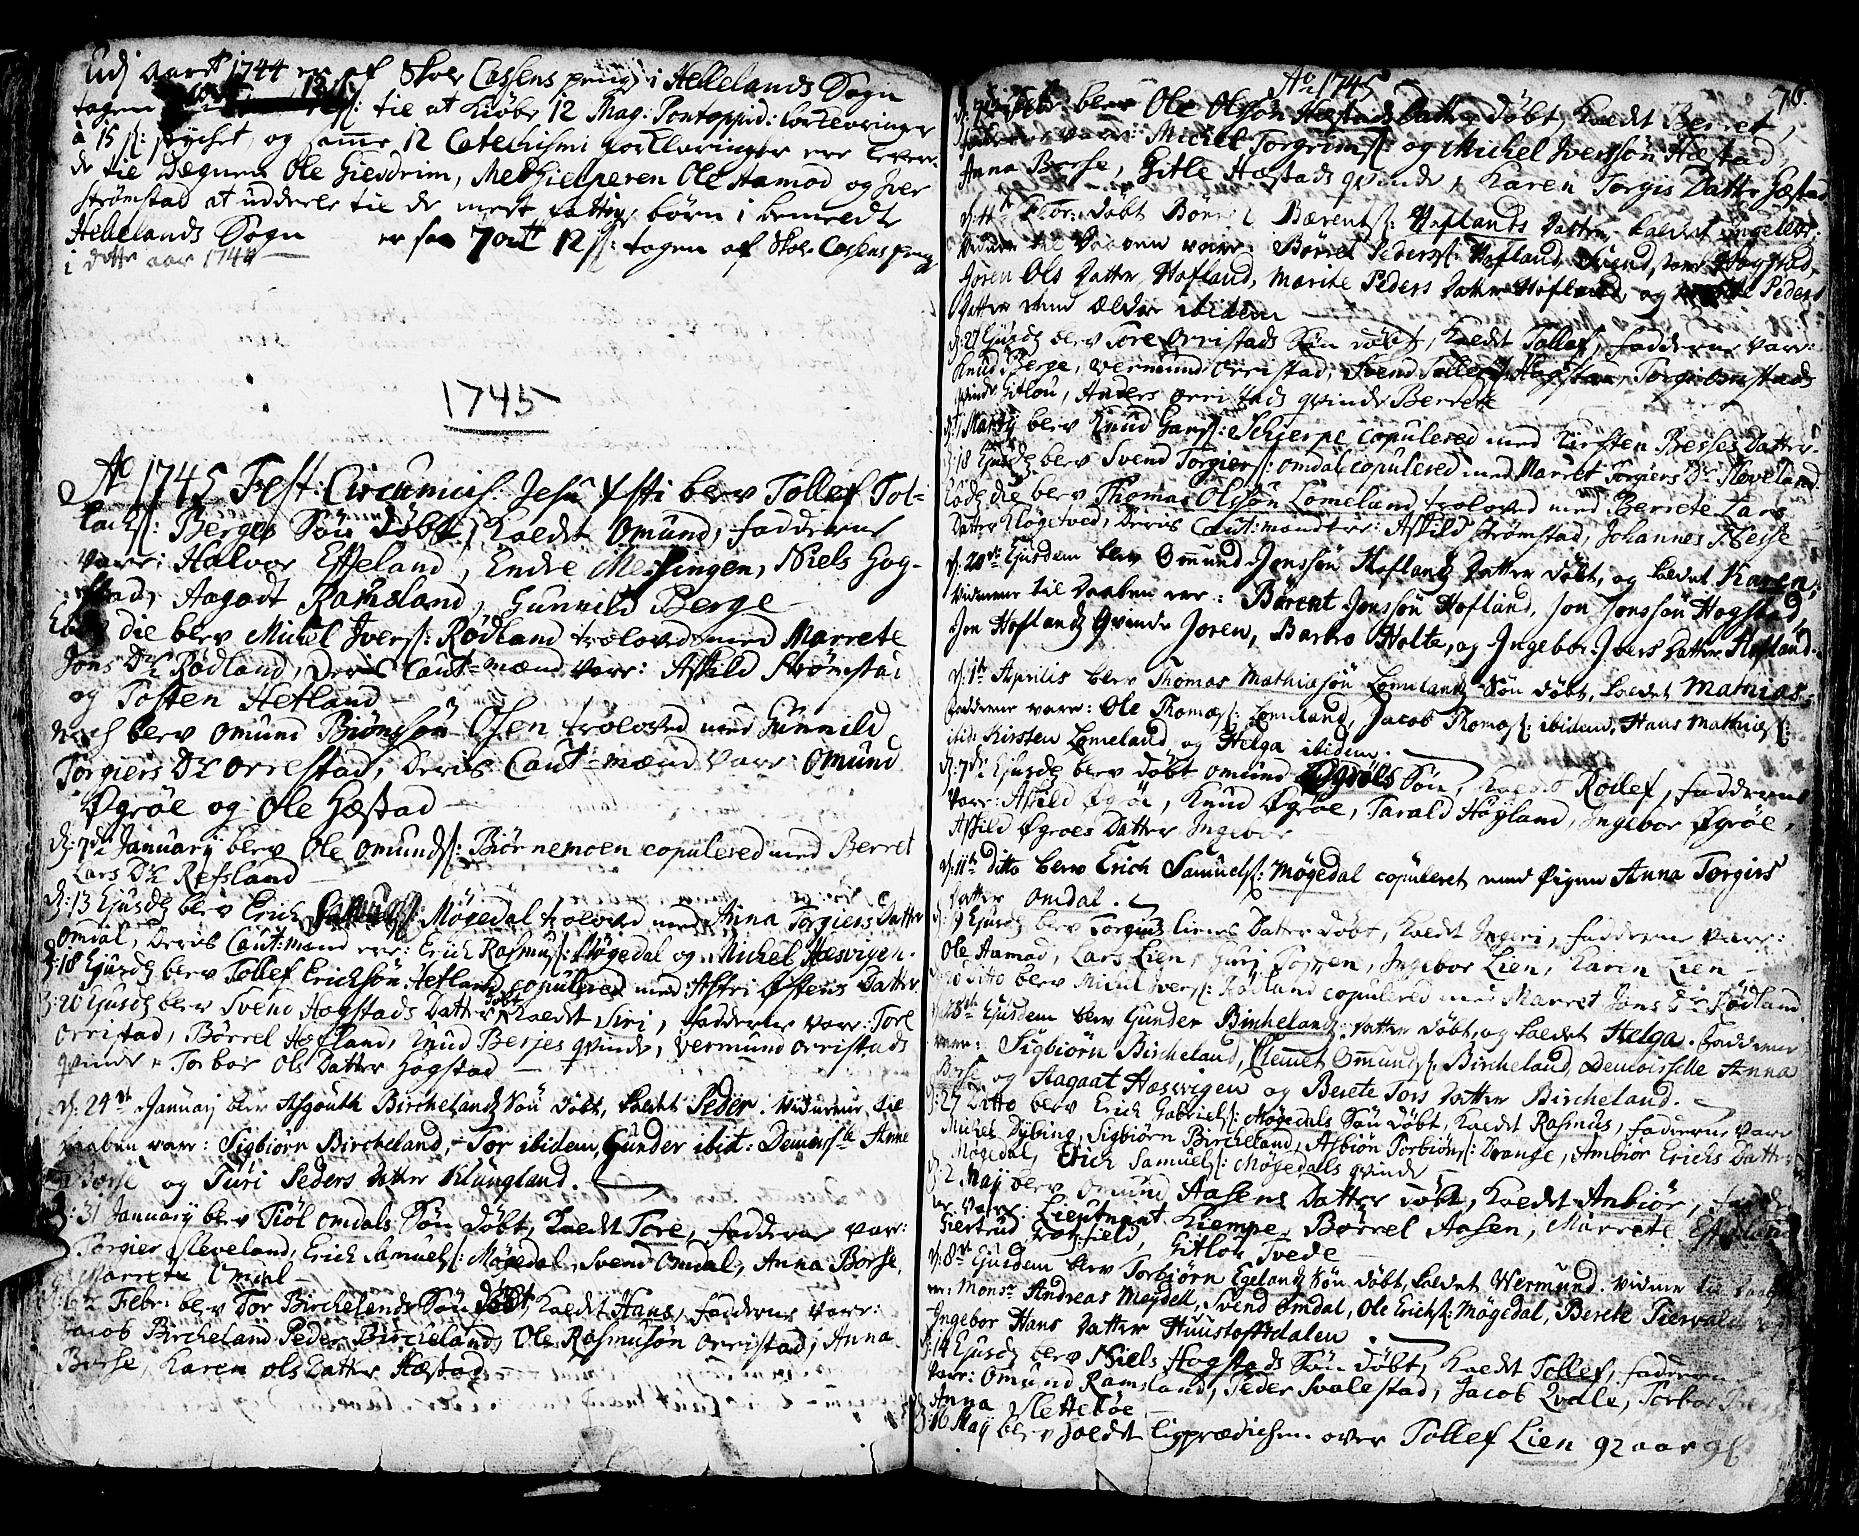 Udj aaret 1744 er af Skole Cassens penge i Hellelands Sogn
tagen til at kiøbe 12 Mag: Pontoppid: forklaringer
à 15 s: stychet, og samme 12 Catechismi forklaringer ere lever-
de til Degnen Ole Giesdrim, Medhielperen Ole Aamod og Iver
Strømstad at uddeele til de mest fattige børn i bemeldte
Hellelands Sogn er saa 7 ort 12 s: tagen af Skole Cassens peng
i dette aar 1744
1745
Ao 1745 Fest: Circumcis: Jesu Xsti blev Tollef Tol-
lachs: Berges Søn døbt, kaldt Omund, fadderne
vare: Halvor Efteland, Endre Messingen, Niels Hog-
stad, Aagadt Ramsland, Gunnild Berge
Eod: die blev Michel Ivers: Rødland trolovd med Marrete
Jons Dr Rødland, deris Caut-mænd vare: Askild Strømstad
og Tosten Hetland
blev Omund Biørnssøn Osen trolovd med Gunnild
Torgiers Dr Orrestad, deris Caut-mænd vare: Omund
Øgrøe og Ole Hæstad
D: 7de Januarij blev Ole Omunds: Biørnemoen copulered med Berret
Lars Dr Refsland
D: 13 Ejusd: blev Erich Samuels: Møgedal trolovd med Anna Torgiers Datter
Omdal, deris Caut:mænd ere: Erich Rasmus: Møgedal og Michel Hæsvigen.
D: 18 Ejusd: blev Tollef Erichssøn Hetland copulered med Astri Østens Datter
D: 20 Ejusd: blev Svend Hogstads Datter døbt kaldt Siri, fadderne vare: Tore
Orristad, Børrel Hofland, Knud Berjes qvinde, Vermund Orristads
qvinde, Torbor Ols Datter Hogstad
D: 24de Januarij blev Asgouth Birchelands Søn døbt, kaldet Peder. Vidnerne til
daaben vare: Sigbiørn Bircheland, Tor ibidem, Gunder ibid: Demoiselle Anne
Borse og Turi Peders datter Klungland.
D: 31 Januarij blev Tiøl Omdals Søn døbt, kaldt Tore, fadderne var:
Torgier Sleveland, Erich Samuels: Møgedal, Svend Omdal, Anna Borse,
Marrete Omdal
D: 6te Febr: blev Tor Birchelands Søn døbt, kaldt Hans, fadderne vare:
Jacob Bircheland Peder Bircheland, Ole Rasmusøn Orristad, Anna
Borse, Karen Ols Datter Hæstad
Ao 1745
76.
blev Ole Olssøn Hæstads Datter døbt, kaldt Berret,
fadderne vare: Michel Torgrims: og Michel Iverssøn Hæstad,
Anna Borse, Gitle Hæstads qvinde, Karen Torgis Datter Hæstad
døbt Børre Bærents: Hoflands datter, kaldet Ingebor:
Vidner til daaben vare: Børrel Peders: Hofland, Svend, Hogstad,
Joren Ols datter Hofland, Marite Peders datter Hofland, og Peders
datter ældre ibidem
D: 21 Ejusd: blev Tore Orristads Søn døbt, kaldt Tollef, fadderne vare:
Knud Berge, Vermund Orristad, Svend Tollefs: Hogstad, Torgi Omstads
qvinde Gitlou, Anders Orristads qvinde Berrete
Martij blev Knud Hans: Schierpe copulered med Kirsten Besses Datter.
D: 18 Ejusd: blev Svend Torgiers: Omdal copulered med Marret Torgiers Dr Sleveland.
Eode die blev Thomas Olssøn Lomeland trolovd med Berrete Lars
Datter Kløgetved, deris Caut:mænd ere: Askild Strømstad, Johannes Nesse
D: 20de Ejusdem blev Omund Jonssøn Hoflands datter døbt, og kaldet Karen.
Vidnerne til daaben ere: Børent Jonssøn Hofland, Jon Jonssøn Hogstad,
Jon Hoflands Qvinde Joren, Barbro Holte, og Ingebor Ivers datter Hofland.
D: 1te Aprilis blev Thomas Mathiasøn Lomelands Søn døbt, kaldet Mathias.
Fadderne vare: Ole Thomas: Lomeland, Jacob Thomas: ibidem, Hans Mathias:
ibid: Kirsten Lomeland og Helga ibidem.
D: 7de Ejusd: blev døbt Omund Øgrøes Søn, kaldt Rodlef, fadderne
vare: Askild Øgrøe, Knud Øgrøe, Tarald Høyland, Ingebor Øgrøe,
Askild Øgroes Datter Ingebor
D: 11te ditto blev Erich Samuels: Møgedal copuleret med Pigen Anna Torgiers
datter Omdal.
Ejusd: blev Torgius Liens Dater døbt, kaldt Ingeri, fadderne vare:
Ole Aamod, Lars Lien, Guri Toppen, Ingebor Lien, Karen Lien
ditto blev Michel Ivers: Rødland copulered med Marret Jons Dr Rødland.
Ejusdem blev Gunder Birchelands datter døbt, og kaldet Helga. Faddere
vare: Sigbiørn Bircheland, Clemet Omunds: Bircheland, Demoiselle Anna
Borse og Aagaat Hæsvigen og Berete Tors datter Bircheland.
D: 27 Ditto blev Erich Gabriels: Møgedals Søn døbt, kaldt Rasmus, fadderne vare
Michel Dybing, Sigbiørn Bircheland, Asbiørn Torbiørns: Drange, Anbiør Erichs Datter
Møgedal, Erich Samuels: Møgedals qvinde
D: 2 Maij blev Omund Aasens Datter døbt, kaldt Anbiør, fadder-
ne vare: Lieutnant Kiempe, Børrel Aasen, Marrete Efteland
Giertrud Trotzfield, Gitlou Tvede
D: 8de Ejusdem blev Torbiørn Egelands Søn døbt, kaldet Wermund. Vidner til daab
er: Monsr Andreas Meydell, Svend Omdal, Ole Erichs: Møgedal, Berete Tiervald
Ingebor Hans datter Huustoftdalen
D: 14 Ejusd: blev Niels Hogstads Søn døbt, kaldt Tollef, fadderne
vare: Omund Ramsland, Peder Svalestad, Jacob Qvale, Torbor
Anna Slettebøe
D: 16 Maij blev holdt ligprædichen over Tollef Lien 92 aar gl: